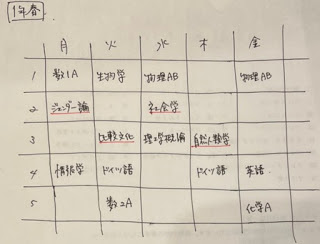 1年春
月 火 水 木 金
1 数1A 生物学 物理AB 物理AB
2 ジェンダー論 社会学
3 比較文化 理工学概論 自然人類学
4 情報学 ドイツ語 ドイツ語 英語
5 数2A 化学A